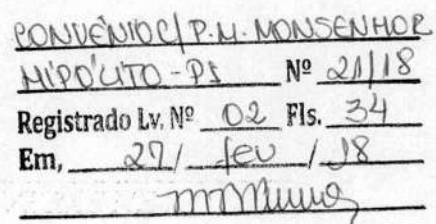 CONVÊNIO C/ P.M. MONSENHOR
HIPÓLITO - PI Nº 21/18
Registrado Lv. Nº 02 Fls. 34
Em, 27/ fev / 18